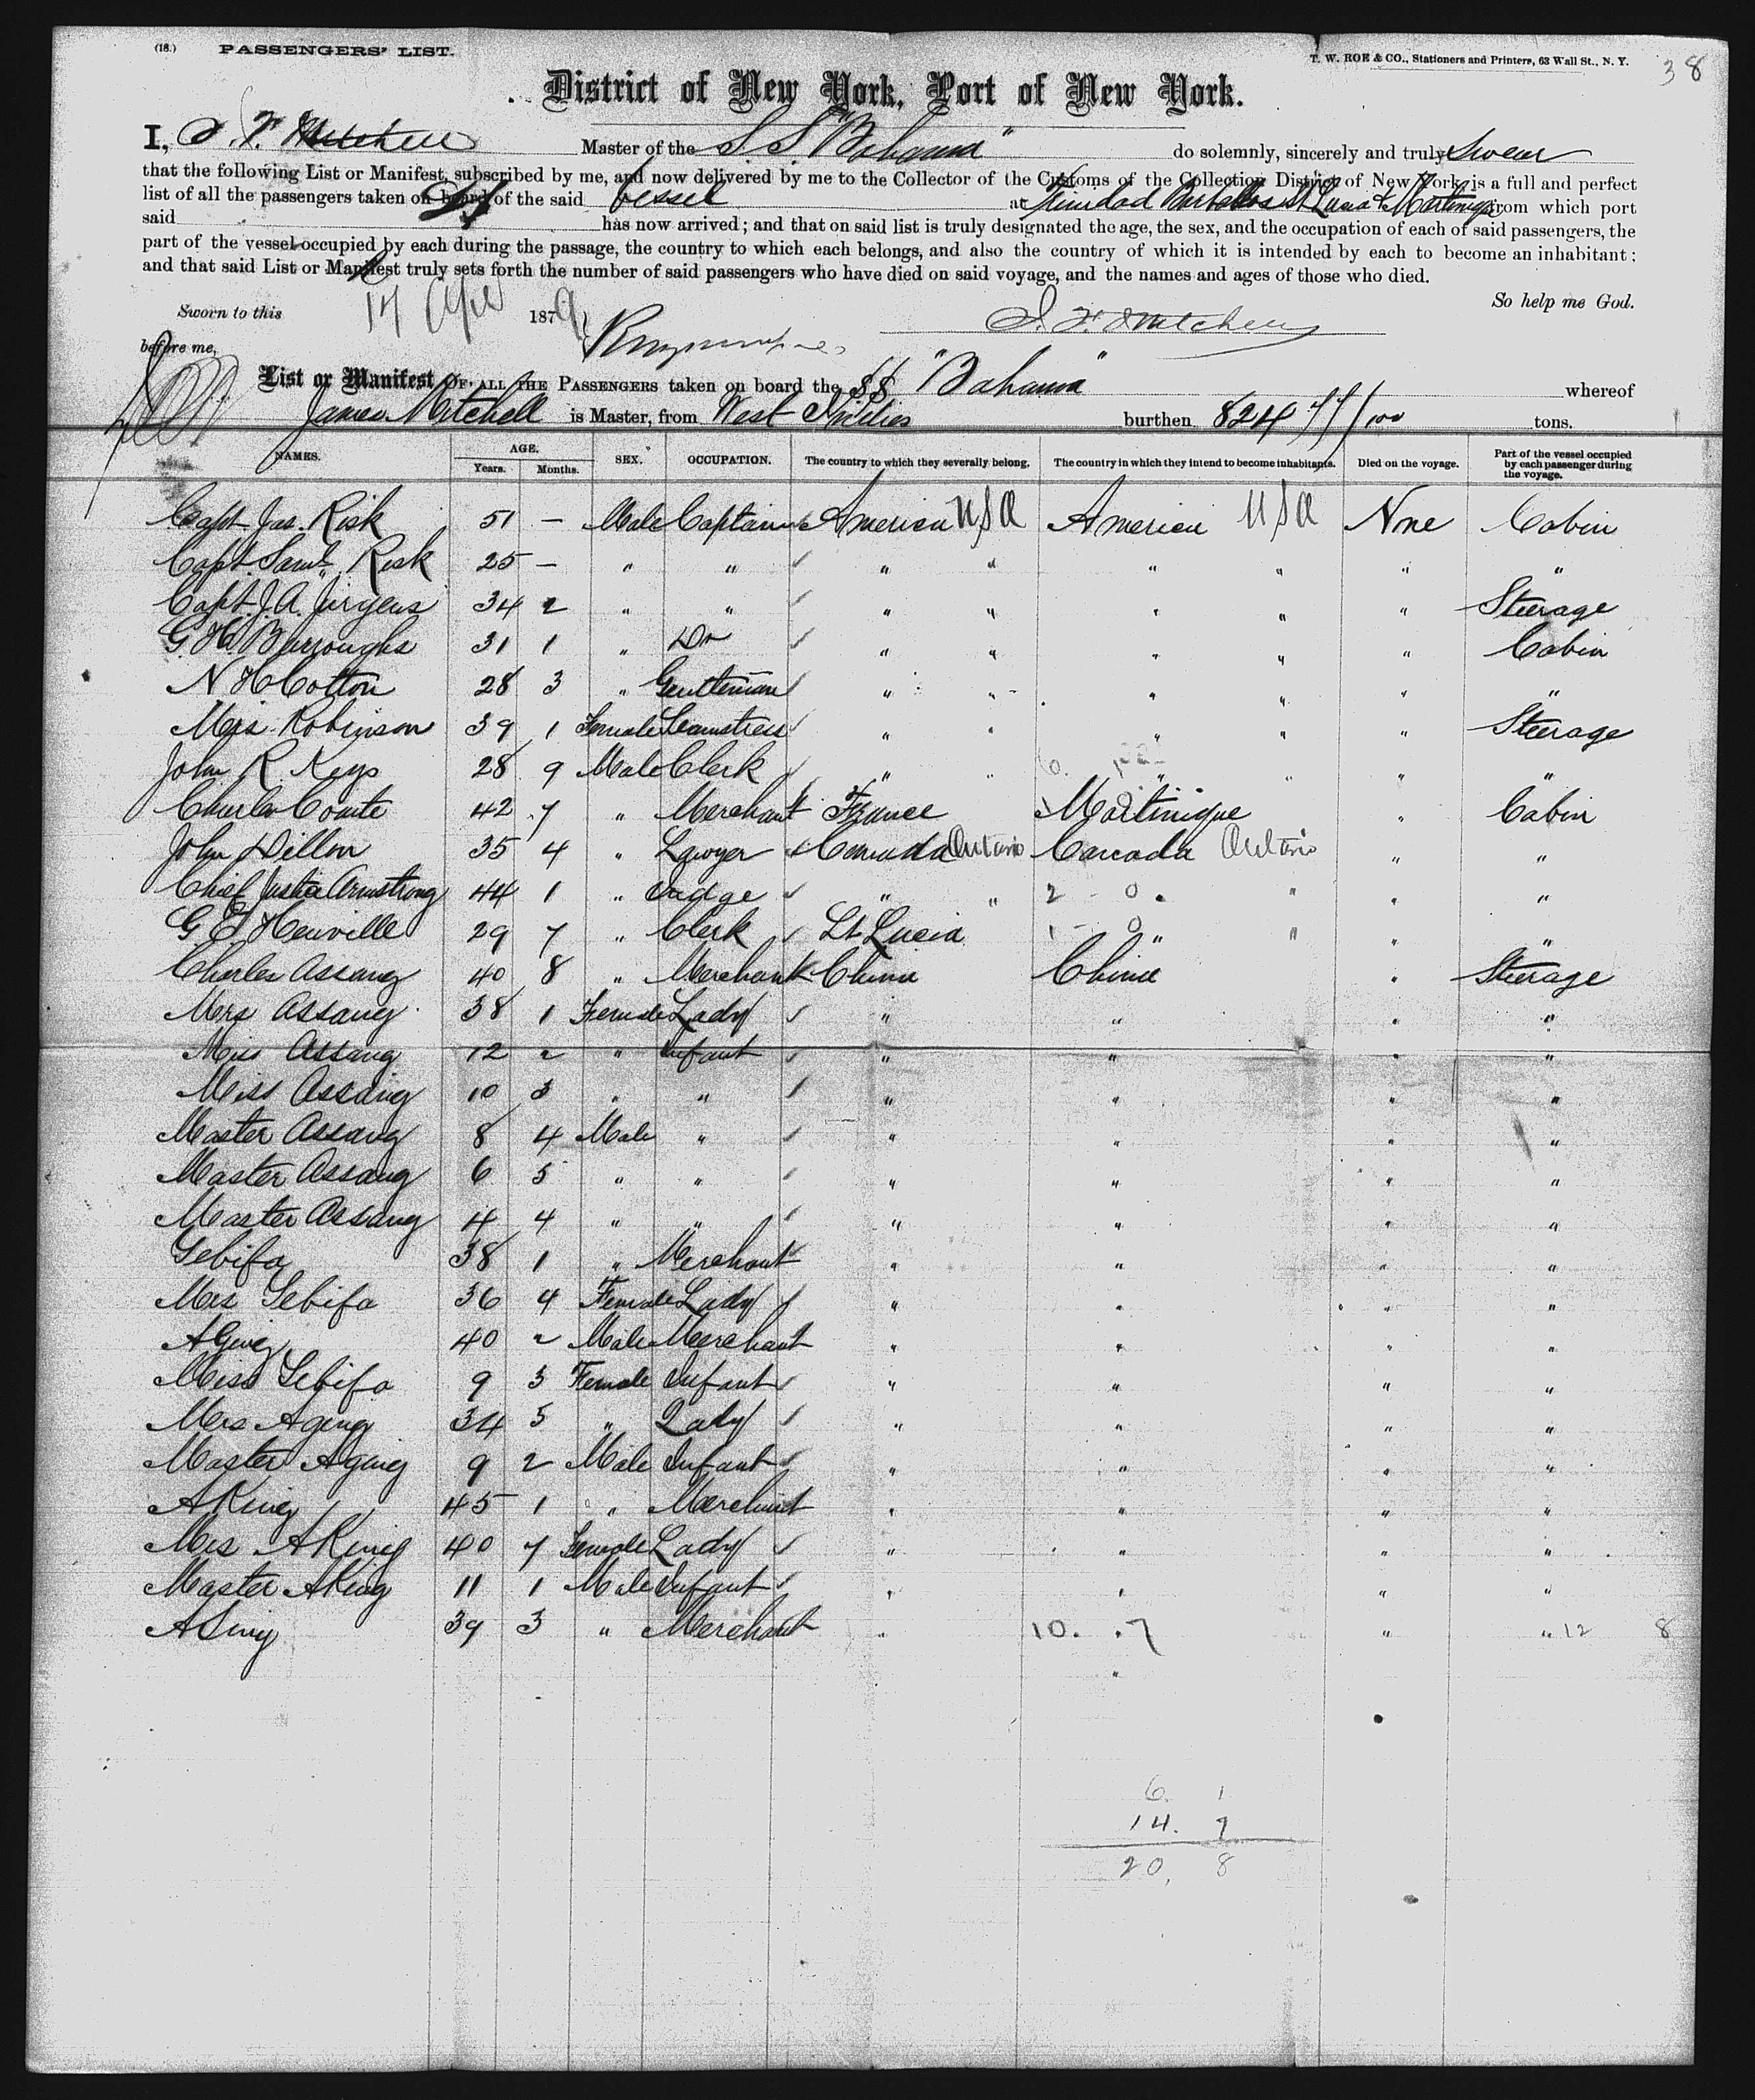 (18.) PASSENGERS' LIST. T. W. ROE & CO., Stationers and Printers, 63 Wall St., N. Y. 38
District of New York, Port of New York.
I, J. F. Mitchell Master of the S S "Bahama" do solemnly, sincerely and truly Swear
that the following List or Manifest, subscribed by me, and now delivered by me to the Collector of the Customs of the Collection District of New York, is a full and perfect
list of all the passengers taken on board of the said Vessel at Trinidad Barbados St Lucia & Martinique from which port
said has now arrived; and that on said list is truly designated the age, the sex, and the occupation of each of said passengers, the
part of the vessel occupied by each during the passage, the country to which each belongs, and also the country of which it is intended by each to become an inhabitant;
and that said List or Manifest truly sets forth the number of said passengers who have died on said voyage, and the names and ages of those who died.
So help me God.
Sworn to this 17 April 1879
J. F. Mitchell
before me,
List or Manifest OF ALL THE PASSENGERS taken on board the SS "Bahama" whereof
James Mitchell is Master, from West Indies burthen 824 77/100 tons.
NAMES. AGE. Years. Months. SEX. OCCUPATION. The country to which they severally belong. The country in which they intend to become inhabitants. Died on the voyage. Part of the vessel occupied by each passenger during the voyage.
Capt Jas. Risk 51 — Male Captain America USA America USA None Cabin
Capt. Saml. Risk 25 — " " " " " " " "
Capt. J. A. Jurgens 34 2 " " " " " " " Steerage
G. H. Burroughs 31 1 " Dr " " " " " Cabin
N H Cotton 28 3 " Gentleman " " " " " "
Mrs Robinson 39 1 Female Seamstress " " " " " Steerage
John R Keys 28 9 Male Clerk " " " " " "
Charles Comte 42 7 " Merchant France Martinique " Cabin
John Dillon 35 4 " Lawyer Canada Ontario Canada Ontario " "
Chief Justice Armstrong 44 1 " Judge " " 2 - 0 " " "
G E Heuville 29 7 " Clerk St Lucia 1 - 0 " " " "
Charles Assang 40 8 " Merchant China China " Steerage
Mrs Assang 38 1 Female Lady " " " "
Miss Assang 12 2 " Infant " " " "
Miss Assang 10 3 " " " " " "
Master Assang 8 4 Male " " " " "
Master Assang 6 5 " " " " " "
Master Assang 4 4 " " " " " "
Sebifa 38 1 " Merchant " " " "
Mrs Sebifa 36 4 Female Lady " " " "
AGing 40 2 Male Merchant " " " "
Miss Sebifa 9 3 Female Infant " " " "
Mrs Aging 34 5 " Lady " " " "
Master Aging 9 2 Male Infant " " " "
AKing 45 1 " Merchant " " " "
Mrs AKing 40 7 Female Lady " " " "
Master AKing 11 1 Male Infant " " " "
ASing 39 3 " Merchant " 10. 7 " " 12 8
"
6. 1
14. 7
20, 8